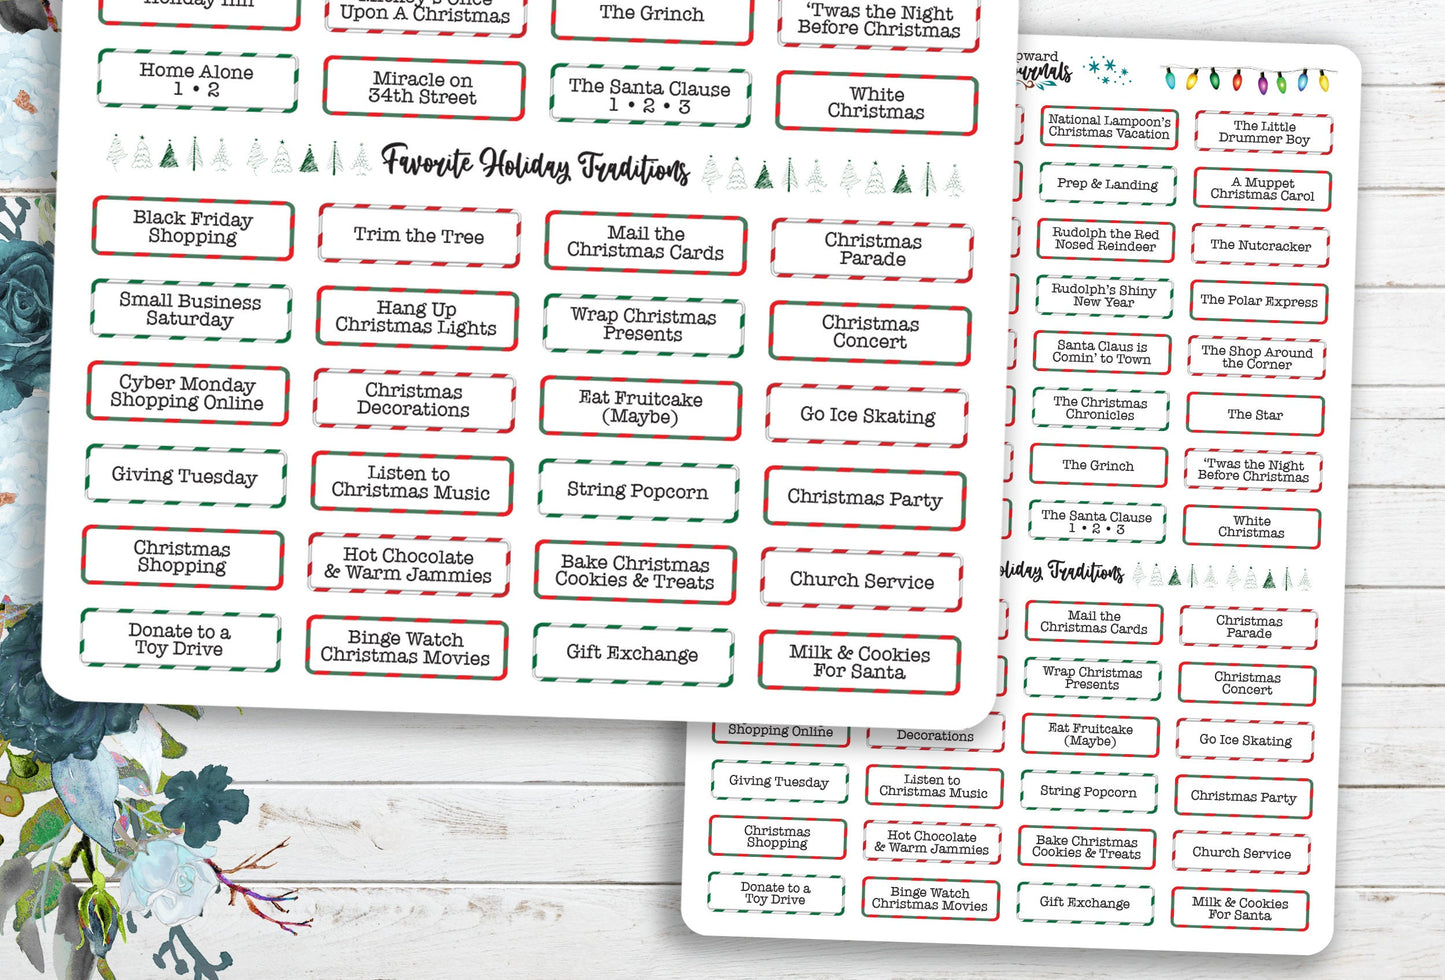 Holiday Inn
Mickey's Once
Upon A Christmas
The Grinch
‘Twas the Night
Before Christmas
Home Alone
1 • 2
Miracle on
34th Street
The Santa Clause
1 • 2 • 3
White
Christmas
Favorite Holiday Traditions
Black Friday
Shopping
Trim the Tree
Mail the
Christmas Cards
Christmas
Parade
Small Business
Saturday
Hang Up
Christmas Lights
Wrap Christmas
Presents
Christmas
Concert
Cyber Monday
Shopping Online
Christmas
Decorations
Eat Fruitcake
(Maybe)
Go Ice Skating
Giving Tuesday
Listen to
Christmas Music
String Popcorn
Christmas Party
Christmas
Shopping
Hot Chocolate
& Warm Jammies
Bake Christmas
Cookies & Treats
Church Service
Donate to a
Toy Drive
Binge Watch
Christmas Movies
Gift Exchange
Milk & Cookies
For Santa
pward
ournals
National Lampoon's
Christmas Vacation
The Little
Drummer Boy
Prep & Landing
A Muppet
Christmas Carol
Rudolph the Red
Nosed Reindeer
The Nutcracker
Rudolph's Shiny
New Year
The Polar Express
Santa Claus is
Comin' to Town
The Shop Around
the Corner
The Christmas
Chronicles
The Star
The Grinch
‘Twas the Night
Before Christmas
The Santa Clause
1 • 2 • 3
White
Christmas
oliday Traditions
Mail the
Christmas Cards
Christmas
Parade
Wrap Christmas
Presents
Christmas
Concert
Shopping Online
Decorations
Eat Fruitcake
(Maybe)
Go Ice Skating
Giving Tuesday
Listen to
Christmas Music
String Popcorn
Christmas Party
Christmas
Shopping
Hot Chocolate
& Warm Jammies
Bake Christmas
Cookies & Treats
Church Service
Donate to a
Toy Drive
Binge Watch
Christmas Movies
Gift Exchange
Milk & Cookies
For Santa